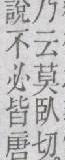 乃云莫臥切
說不必皆唐